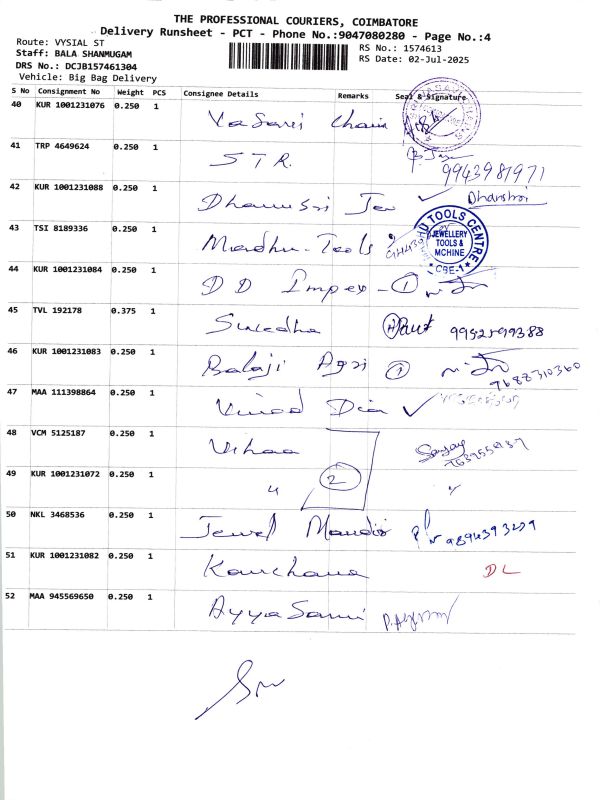 THE PROFESSIONAL COURIERS, COIMBATORE
Delivery Runsheet - PCT - Phone No.:9047080280 - Page No.:4
Route: VYSIAL ST
Staff: BALA SHANMUGAM
DRS No.: DCJB157461304
Vehicle: Big Bag Delivery
RS No.: 1574613
RS Date: 02-Jul-2025
S No Consignment No Weight PCS Consignee Details Remarks Seal & Signature
40 KUR 1001231076 0.250 1 Vasavi Chain
41 TRP 4649624 0.250 1 STR. 9943981971
42 KUR 1001231088 0.250 1 Dhanusri Jew Dhanshri
43 TSI 8189336 0.250 1 Madhu-Tools
TOOLS CENTRE
JEWELLERY
TOOLS &
MCHINE
CBE-1
44 KUR 1001231084 0.250 1 DD Impex - 1
45 TVL 192178 0.375 1 Suredha 9952599388
46 KUR 1001231083 0.250 1 Balaji Agri 1 7688310360
47 MAA 111398864 0.250 1 Vinod Dia
48 VCM 5125187 0.250 1 Vihaa Sanjay
49 KUR 1001231072 0.250 1 " 2 "
50 NKL 3468536 0.250 1 Jewel Mandir 9894393239
51 KUR 1001231082 0.250 1 Kanchana DL
52 MAA 945569650 0.250 1 Ayyasami